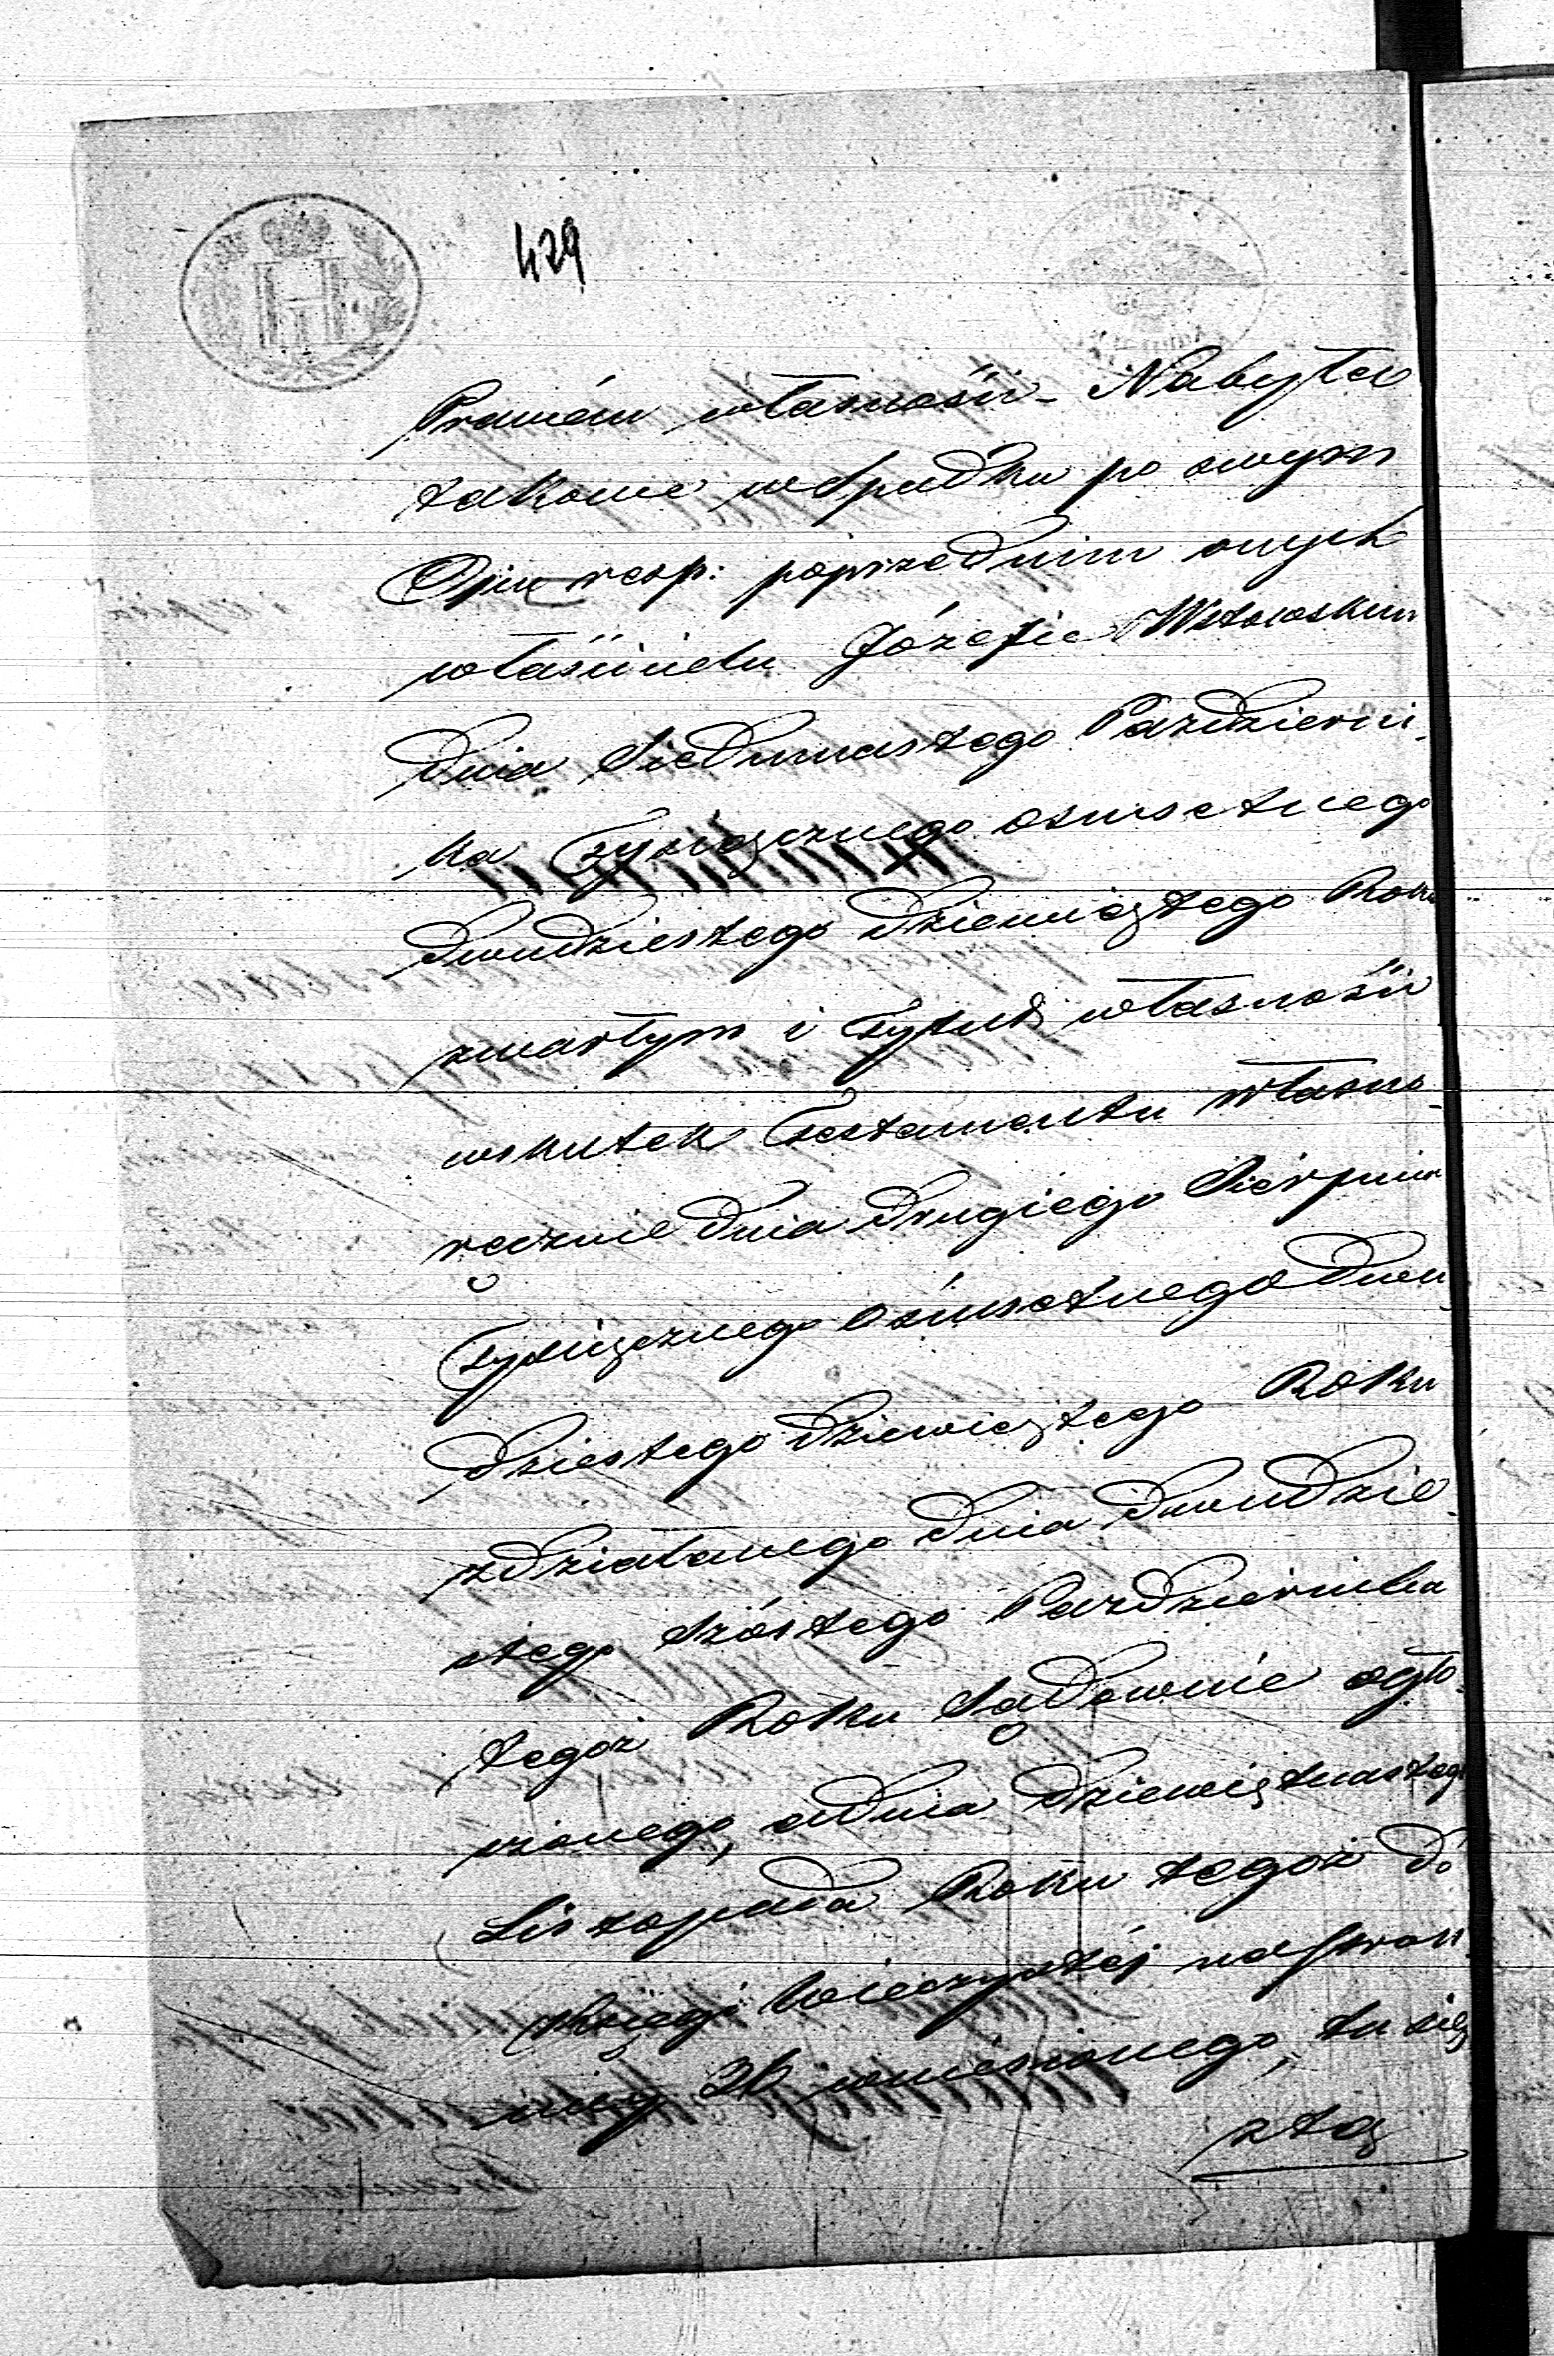 429
Prawem własności. Nabyłeś
takowe w spadku po swym
Ojcu resp: poprzednim onych
właścicielu Józefie Wstowskim
dnia siedmnastego Pazdzierni-
ka Tysiącznego osmsetnego
dwudziestego dziewiątego Roku
zmarłym i Tytuł własności
wskutek Testamentu własno-
ręcznie dnia drugiego Sierpnia
Tysiącznego Osmsetnego dwu
dziestego dziewiątego Roku
zdziałanego dnia dwudzie-
stego szóstego Pazdziernika
tegoż Roku Sądownie ogło-
szonego, a dnia dziewiętnastego
Listopada Roku tegoż do
Księgi Wieczystej na stron-
nicy 36 wniesionego,